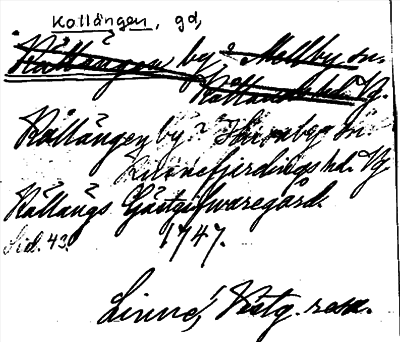 Kollängen, gd,
Kållängen, by ? Mellby sn.
Kållands hd. Vg.
Kållängen by? Skarabg sn
Kinnefjerdings hd. Vg
Kållängs Gästgifwaregård.
Sid. 43. 1747.
Linné, Västg. resa.